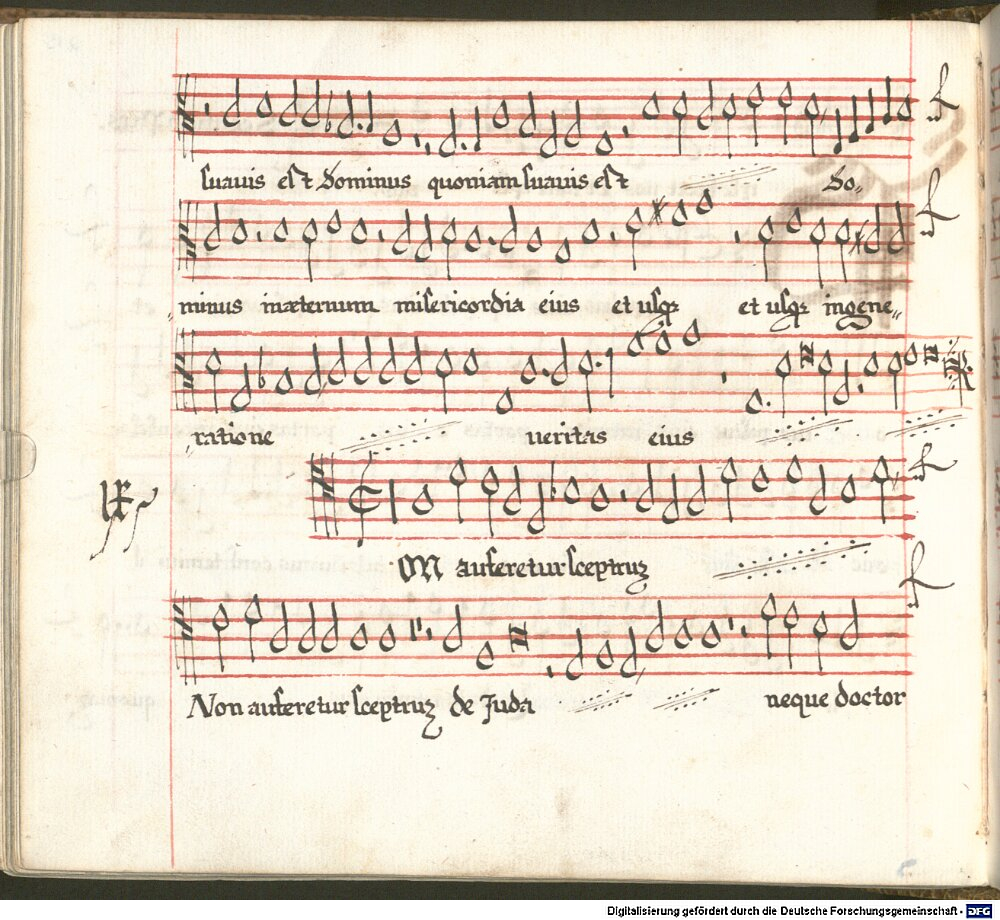 suauis est Dominus quoniam suauis est Do„
„minus inæternum misericordia eius et usqꝫ et usqꝫ ingene„
ratione veritas eius
IX
ON auferetur sceptruꝫ
Non auferetur sceptruꝫ de Juda neque doctor
Digitalisierung gefördert durch die Deutsche Forschungsgemeinschaft - DFG